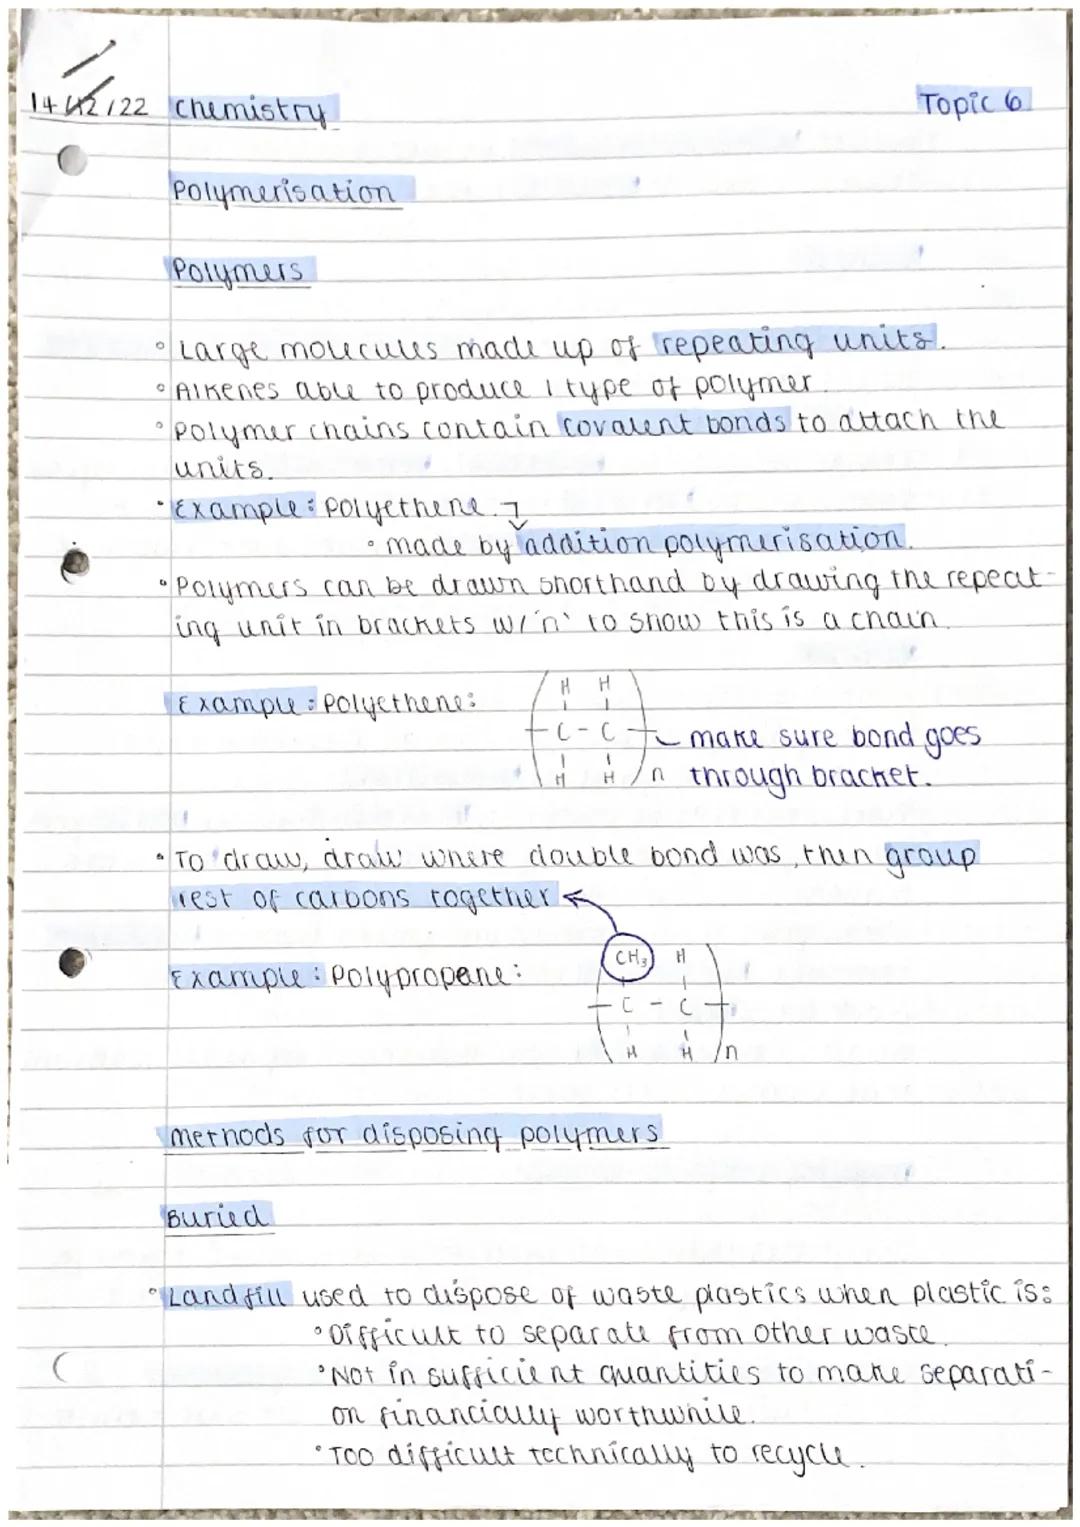 14/12/22 Chemistry Topic 6
Polymerisation
Polymers
◦ Large molecules made up of repeating units.
◦ Alkenes able to produce 1 type of polymer.
◦ Polymer chains contain covalent bonds to attach the
units.
◦ Example: Polyethene.
◦ made by addition polymerisation.
◦ Polymers can be drawn shorthand by drawing the repeat-
ing unit in brackets w/ 'n' to show this is a chain.
H H
Example: Polyethene:
C - C
make sure bond goes
H H n through bracket.
◦ To draw, draw where double bond was, then group
rest of carbons together
CH₃ H
Example: Polypropene:
C - C
H H n
Methods for disposing polymers
Buried
◦ Landfill used to dispose of waste plastics when plastic is:
◦ Difficult to separate from other waste.
◦ Not in sufficient quantities to make separati-
on financially worthwhile.
◦ Too difficult technically to recycle.